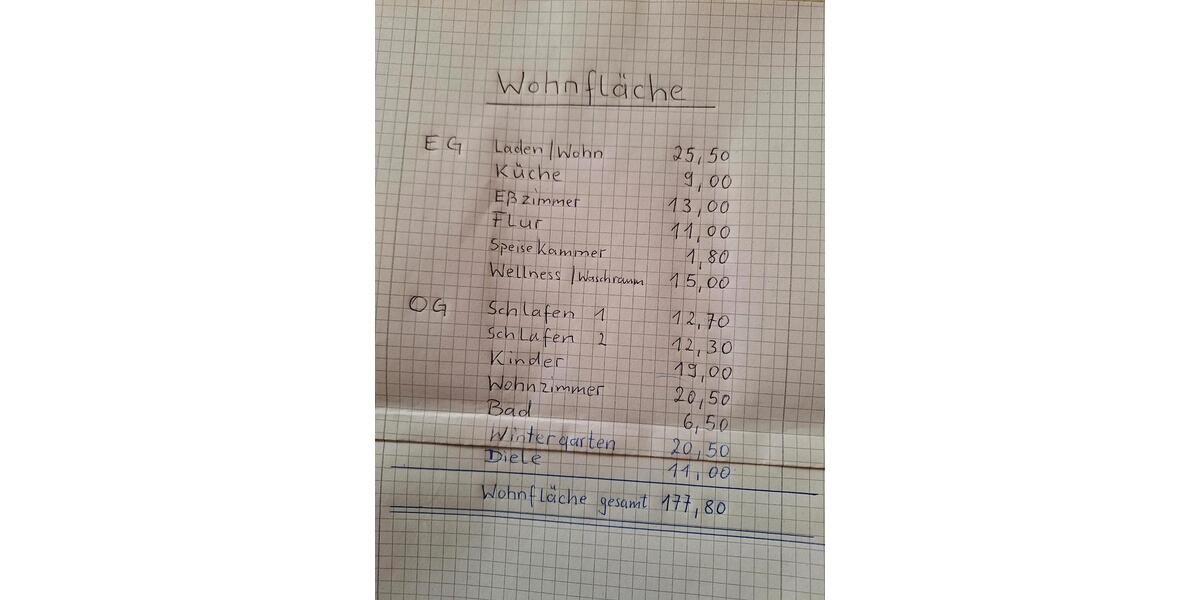 Wohnfläche
EG Laden/Wohn 25,50
Küche 9,00
Eßzimmer 13,00
Flur 11,00
Speisekammer 1,80
Wellness/Waschraum 15,00
OG Schlafen 1 12,70
Schlafen 2 12,30
Kinder 19,00
Wohnzimmer 20,50
Bad 6,50
Wintergarten 20,50
Diele 11,00
Wohnfläche gesamt 177,80